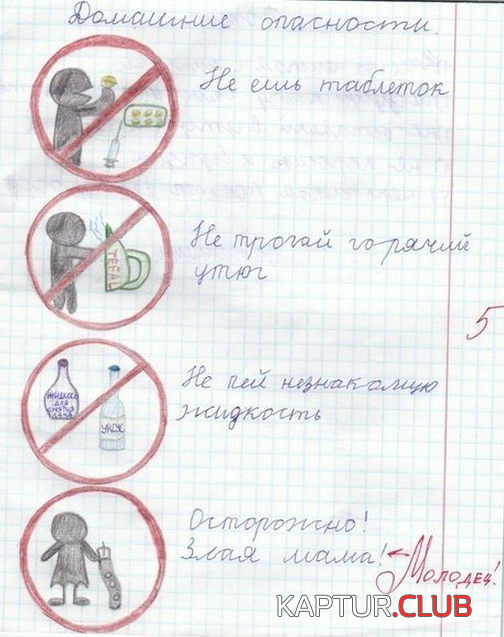 Домашние опасности.
Не ешь таблеток
Не трогай горячий
утюг
TEFAL
5
Не пей незнакомую
жидкость
ЖИДКОСТЬ
ДЛЯ
СНЯТИЯ
ЛАКА
УКСУС
Осторожно!
Злая мама!
Молодец!
KAPTUR.CLUB